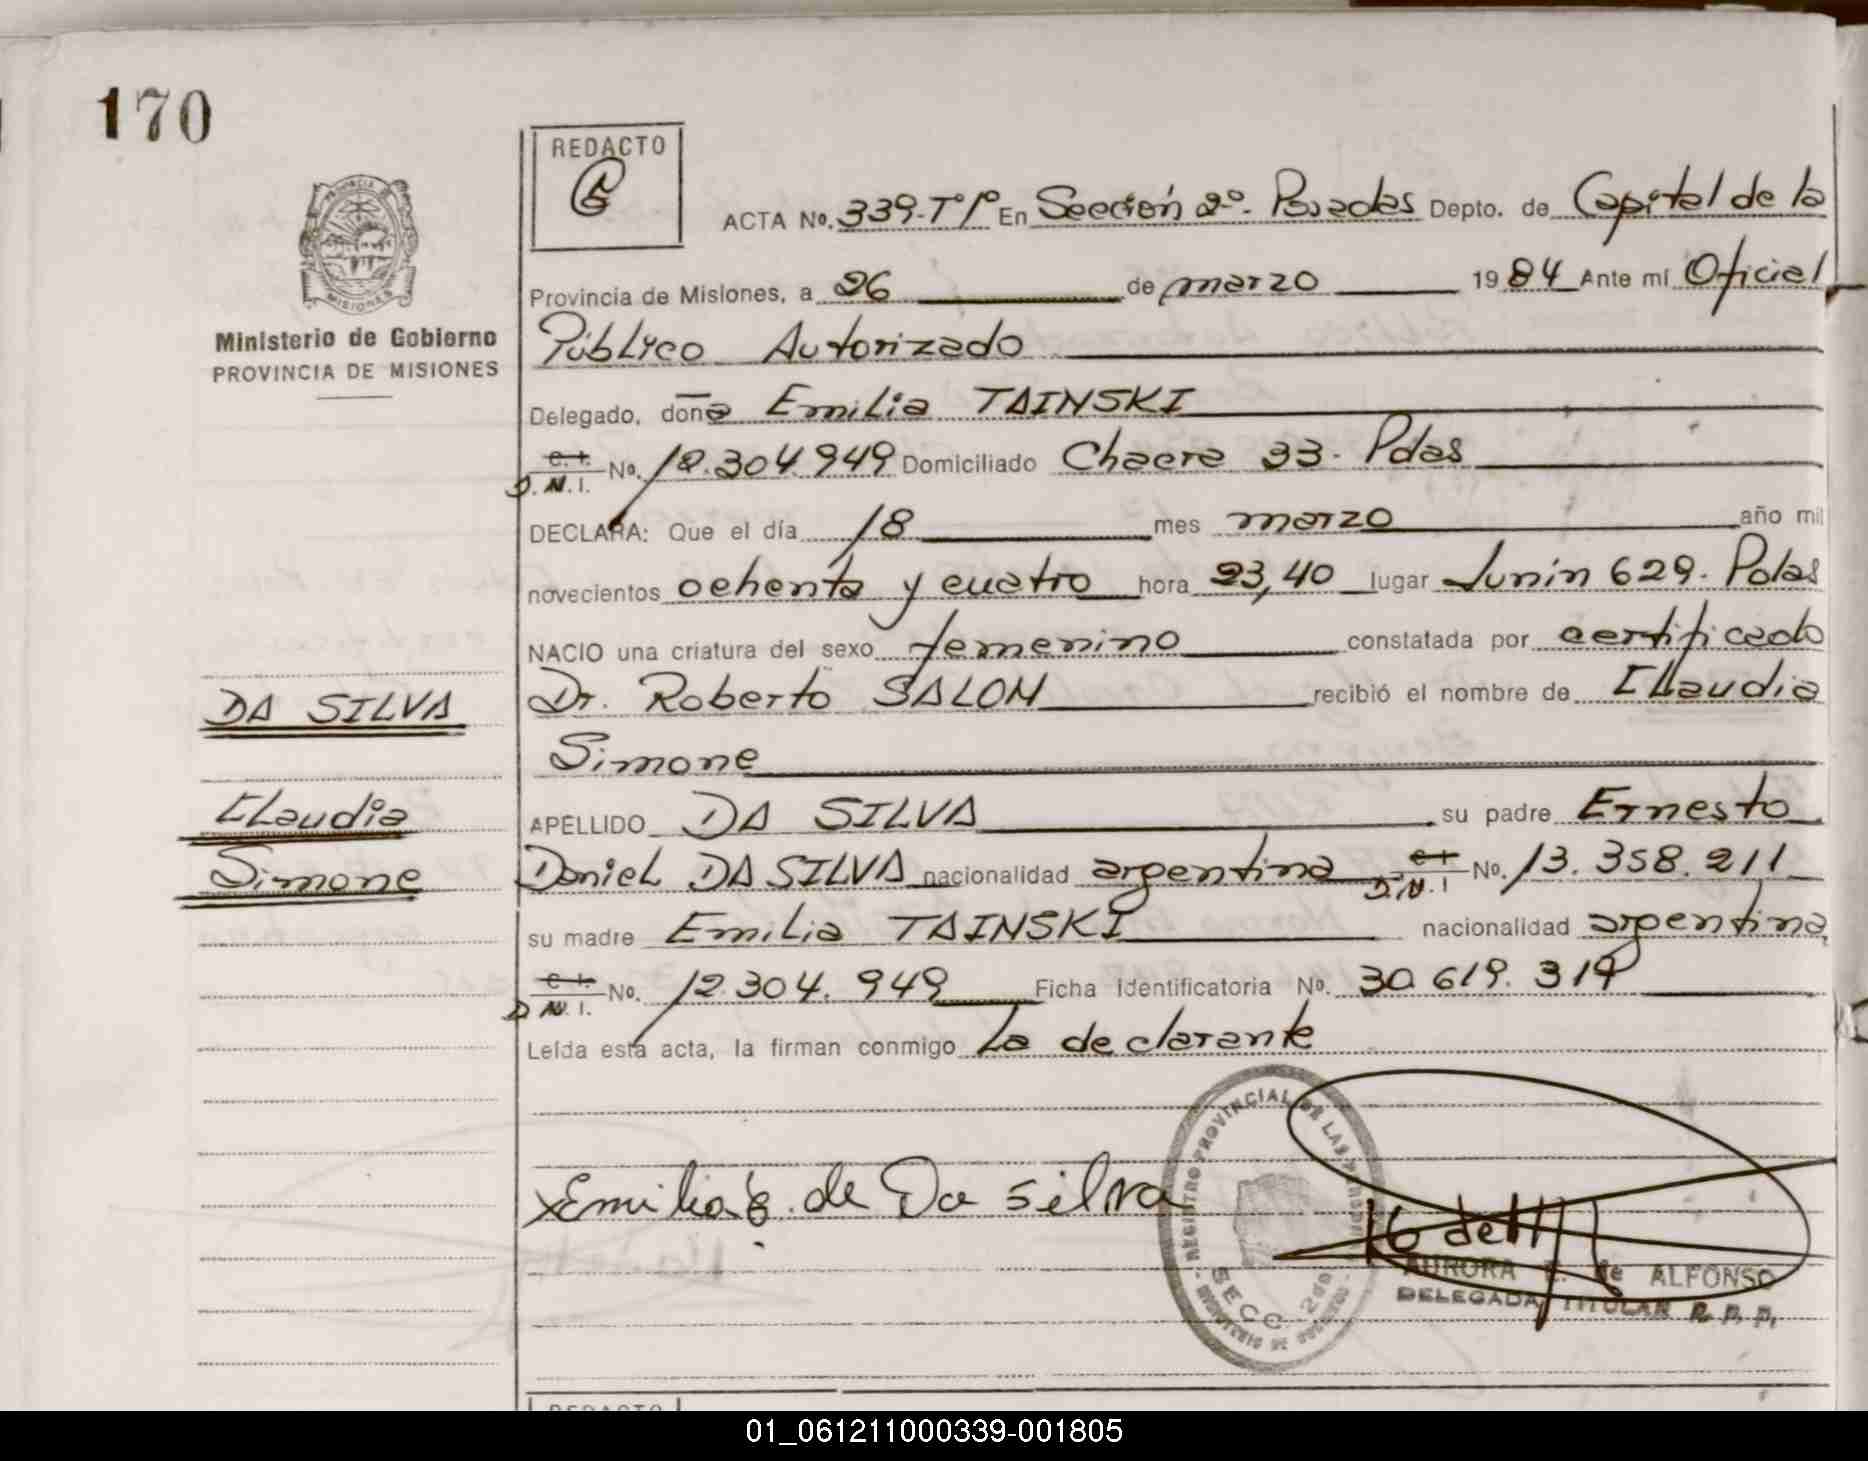 170
REDACTO
ACTA No. 339-Tº Iº En Sección 2º. Posadas Depto. de Capital de la
Provincia de Misiones, a 26 de marzo 1984 Ante mí Oficial
Ministerio de Gobierno
PROVINCIA DE MISIONES
Público Autorizado
Delegado, doña Emilia TAINSKI
D.N.I. No. 12.304.949 Domiciliado Chacra 33. Pdas
DECLARA: Que el día 18 mes marzo año mil
novecientos ochenta y cuatro hora 23,40 lugar Junín 629. Pdas
NACIO una criatura del sexo femenino constatada por certificado
DA SILVA
Dr. Roberto SALOM recibió el nombre de Claudia
Simone
Claudia
APELLIDO DA SILVA su padre Ernesto
Simone
Daniel DA SILVA nacionalidad argentina D.N.I No. 13.358.211
su madre Emilia TAINSKI nacionalidad argentina
D.N.I. No. 12.304.949 Ficha Identificatoria No. 30.619.319
Leída esta acta, la firman conmigo La declarante
REGISTRO PROVINCIAL DE LAS PERSONAS
SECC. 2da
Emilia de Da silva
AURORA de ALFONSO
DELEGADA TITULAR R.P.P.
REDACTO
01_061211000339-001805